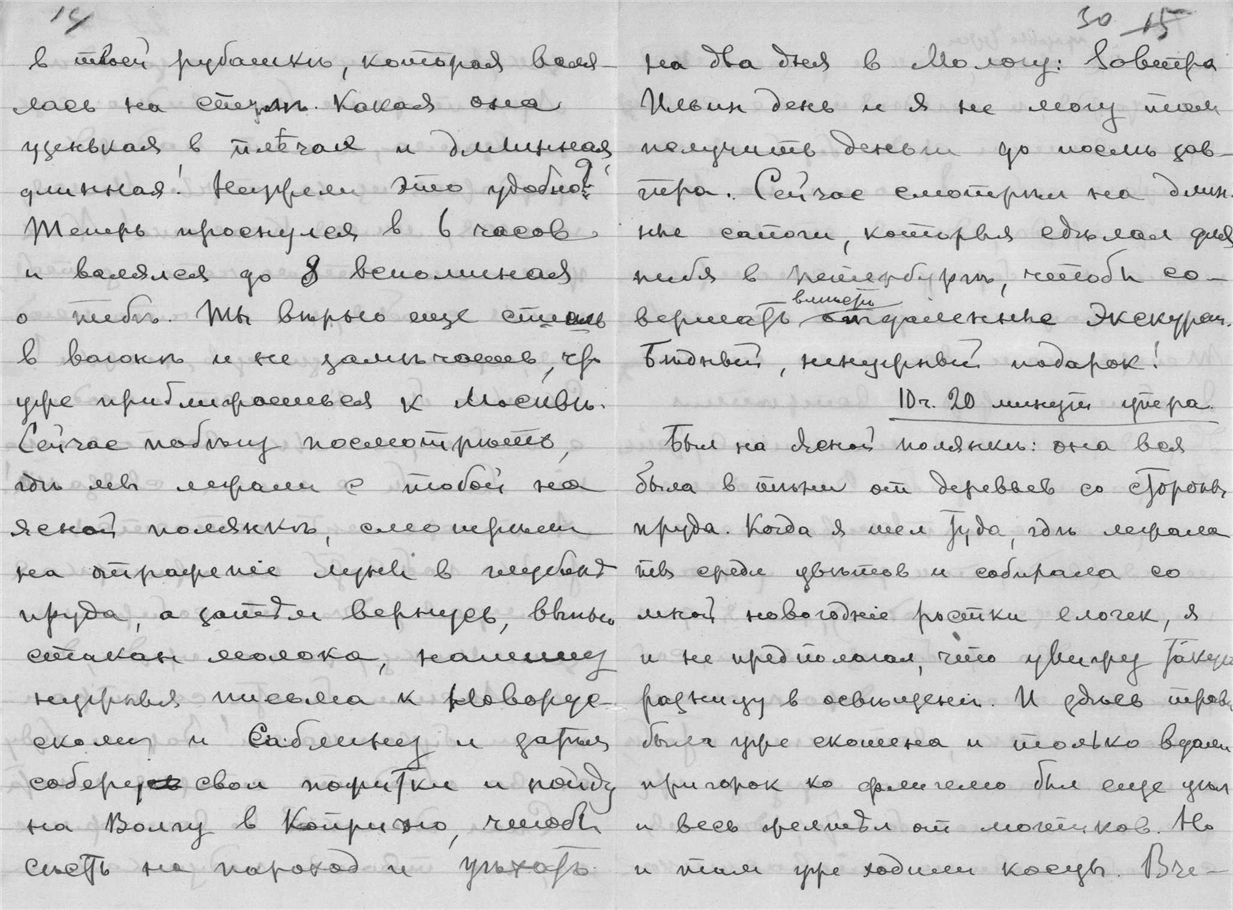 14
в твоей рубашкѣ, которая валя-
лась на стулѣ. Какая она
узенькая в плечах и длинная
длинная! Неужели это удобно?
Теперь проснулся в 6 часов
и валялся до 8 вспоминая
о тебѣ. Ты вѣрно еще спишь
в вагонѣ и не замѣчаешь, что
уже приближаешься к Москвѣ.
Сейчас побѣгу посмотрѣть,
гдѣ мы лежали с тобой на
ясной полянкѣ, смотрѣли
на отраженіе луны в глубинѣ
пруда, а затѣм вернусь, выпью
стакан молока, напишу
нужныя письма к Новорус-
скому и Саблину и затѣм
соберу свои пожитки и пойду
на Волгу в Коприно, чтобы
сѣсть на пароход и уѣхать
30 15
на два дня в Мологу: Завтра
Ильин день и я не могу там
получить деньги до послѣ зав-
тра. Сейчас смотрѣл на длин-
ные сапоги, которые сдѣлал для
тебя в Петербургѣ, чтобы со-
вершать вмѣстѣ отдаленные экскурсіи.
Бѣдный, ненужный подарок!
10 ч. 20 минут утра.
Был на Ясной полянкѣ: она вся
была в тѣни от деревьев со стороны
пруда. Когда я шел туда, гдѣ лежала
ты среди цвѣтов и собирала со
мной новогодніе ростки елочек, я
и не предполагал, что увижу такую
разницу в освѣщеніи. И здѣсь трава
была уже скошена и только вдали
пригорок ко флигелю был еще цѣл
и весь желтѣл от лютиков. Но
и там уже ходили косцы. Вче-